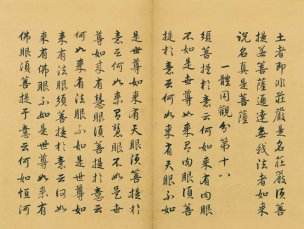 土者即非莊嚴是名莊嚴須菩
提若菩薩通達無我法者如來
說名真是菩薩
一體同觀分第十八
須菩提於意云何如來有肉眼
不如是世尊如來有肉眼須菩
提於意云何如來有天眼不如
是世尊如來有天眼須菩提於
意云何如來有慧眼不如是世
尊如來有慧眼須菩提於意云
何如來有法眼不如是世尊如
來有法眼須菩提於意云何如
來有佛眼不如是世尊如來有
佛眼須菩提於意云何如恒河